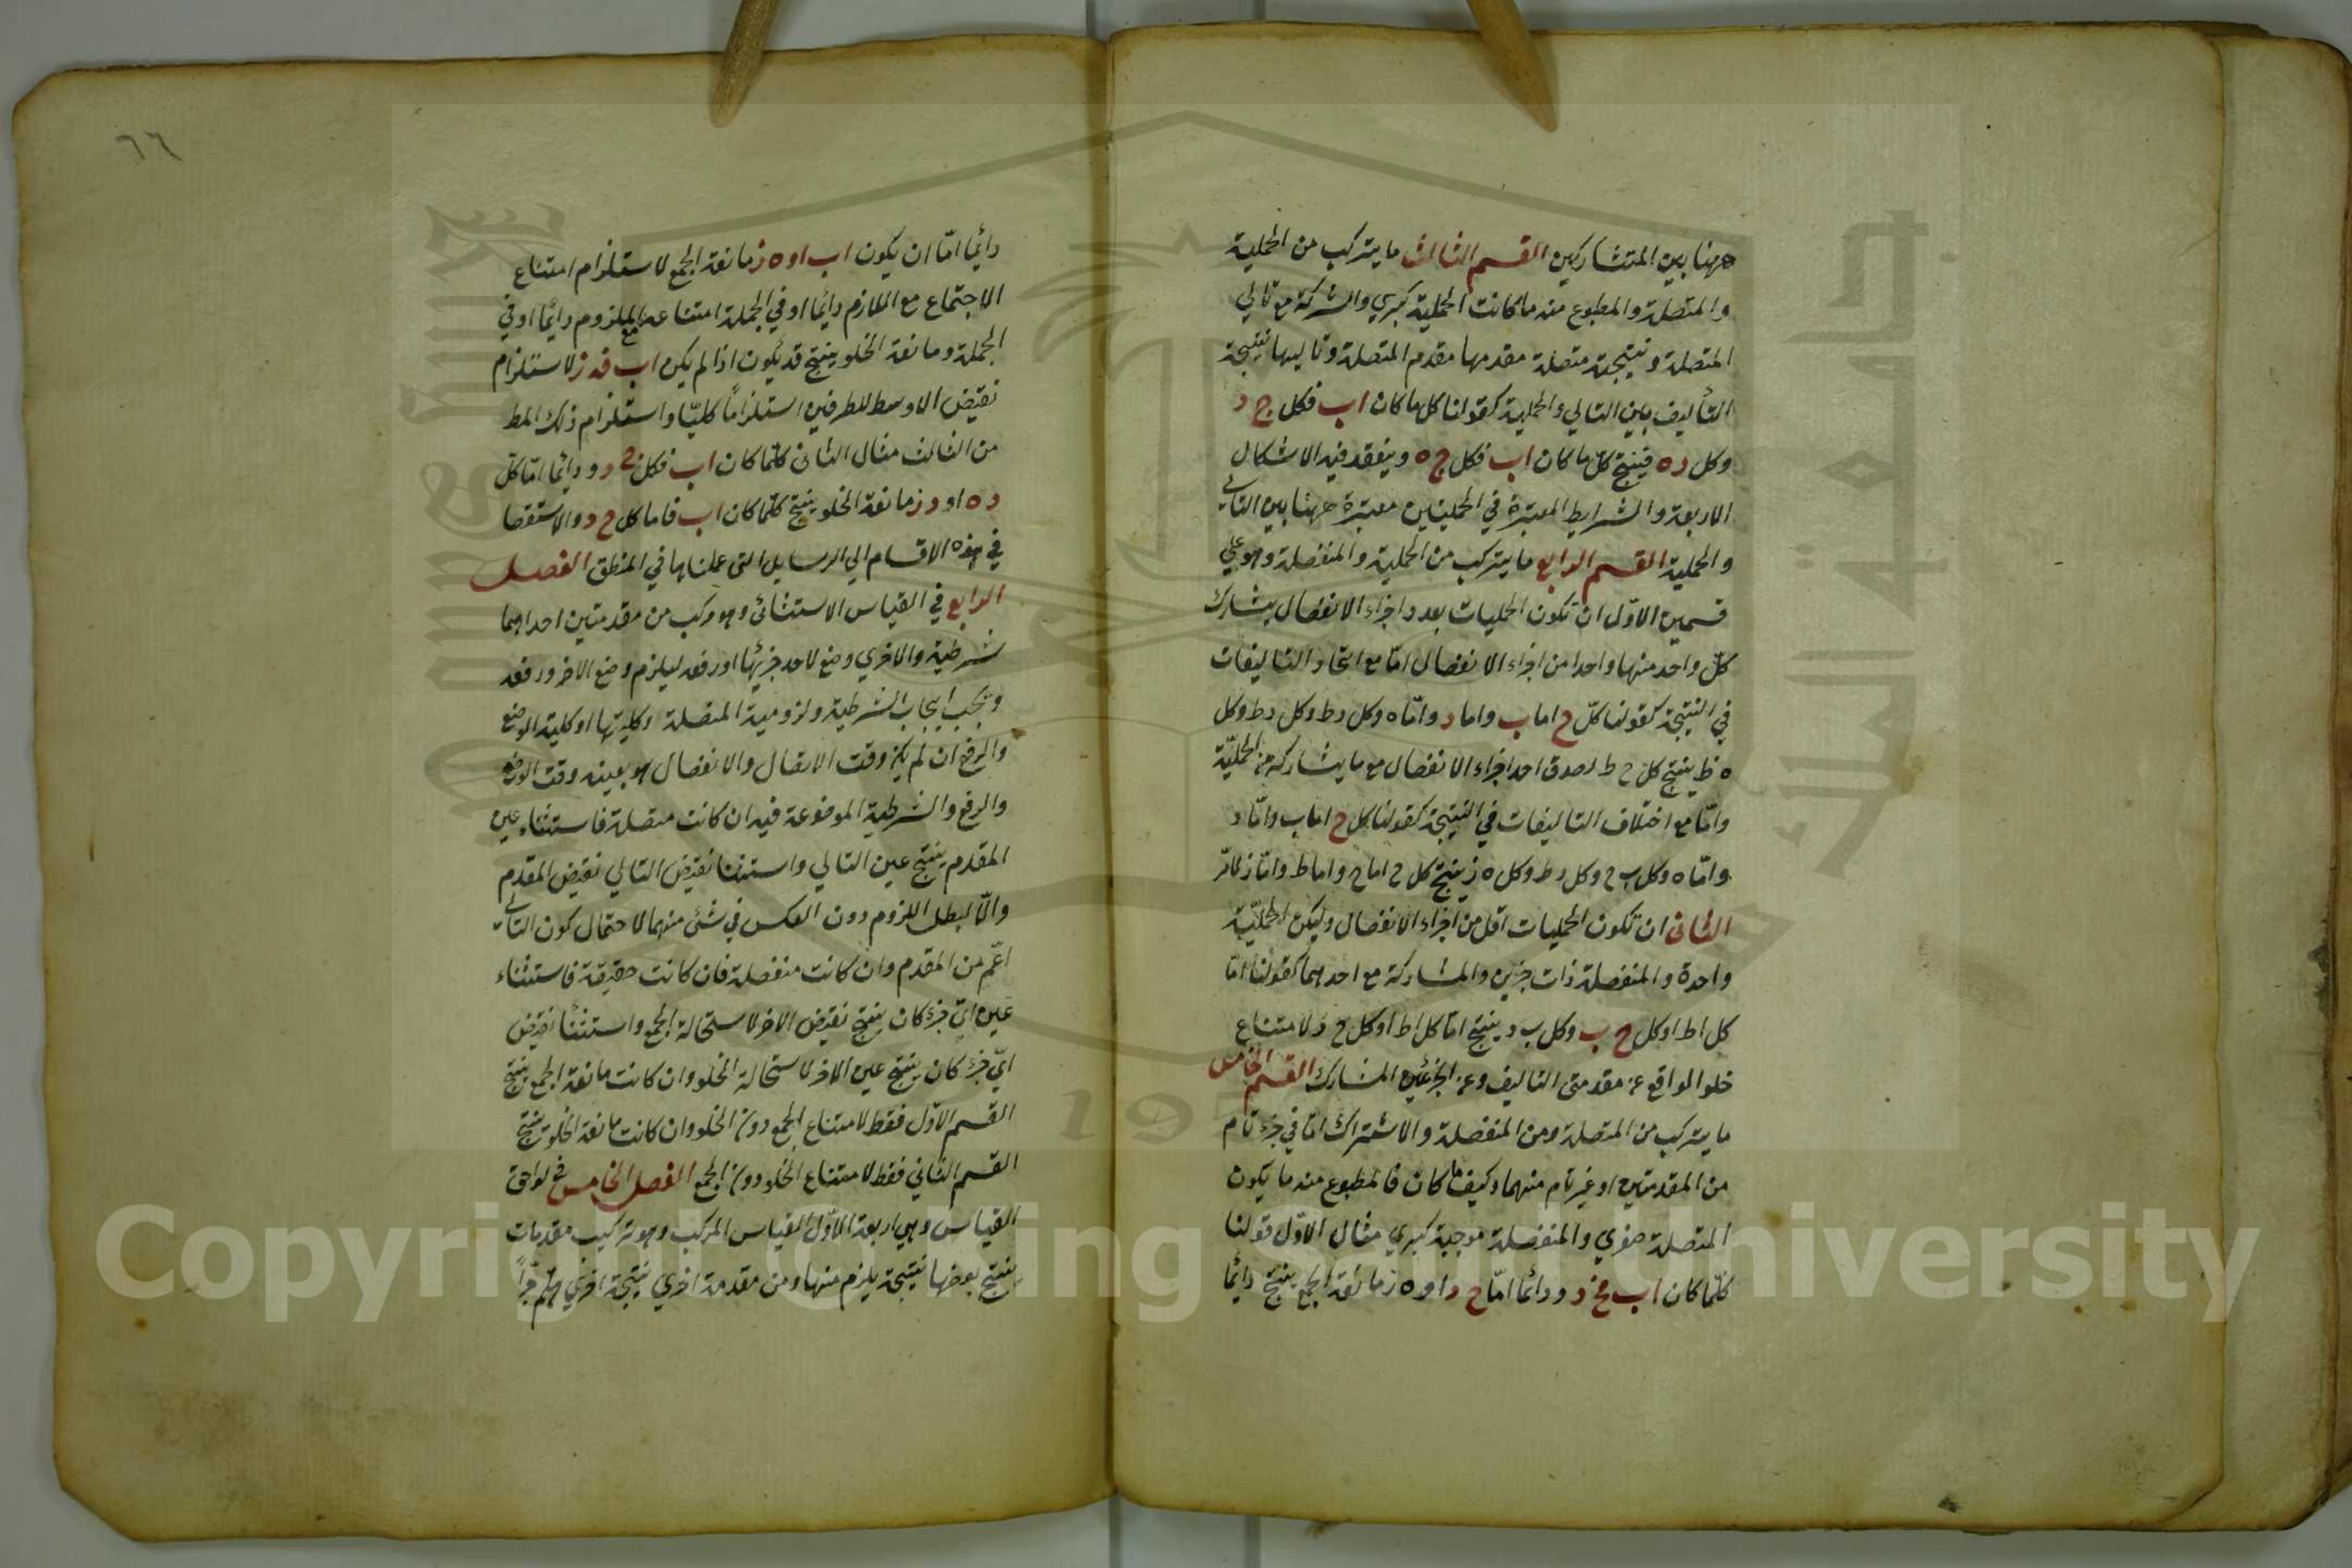 ههنا بين المتشاركين القسم الثالث ما يتركب من الحملية
والمتصلة والمطبوع منه ما كانت الحملية كبري والشركة مع تالي
المتصلة ونتيجته متصلة مقدمها مقدم المتصلة وتاليها نتيجة
التأليف بين التالي والحملية كقولنا كل ما كان اب فكل ج د
وكل د ه فينتج كل ما كان اب فكل ج ه وينعقد فيه الاشكال
الاربعة والشرايط المعتبرة في الحمليتين معتبرة ههنا بين التالي
والحملية القسم الرابع ما يتركب من الحملية والمنفصلة وهو علي
قسمين الاول ان تكون الحمليات بعدد اجزاء الانفصال يشارك
كل واحد منها واحدا من اجزاء الانفصال اما مع اتحاد التاليفات
في النتيجة كقولنا كل ح اما ب واما د واما ه وكل د ط وكل
ه ط ينتج كل ح ط لصدق احد اجزاء الانفصال مع ما يشاركه من الحملية
واما مع اختلاف التاليفات في النتيجة كقولنا كل ح اما ب واما د
واما ه وكل ب ح وكل د ط وكل ه ز ينتج كل ح اما ح واما ط واما ز لما مر
الثاني ان تكون الحمليات اقل من اجزاء الانفصال وليكن الحملية
واحدة والمنفصلة ذات جزين والمشاركة مع احدهما كقولنا اما
كل اط او كل ح ب وكل ب د ينتج اما كل اط او كل ح د لامتناع
خلو الواقع عن مقدمتي التاليف وعن الجزء الغير المشارك القسم الخامس
ما يتركب من المتصلة ومن المنفصلة والاشتراك اما في جزء تام
من المقدمتين او غير تام منهما وكيف ما كان فالمطبوع منه ما يكون
المتصلة صغري والمنفصلة موجبة كبري مثال الاول قولنا
كلما كان اب فج د ودائما اما ح د او ه ز مانعة الجمع ينتج دائما
٦٦
دائما اما ان يكون اب او ه ز مانعة الجمع لاستلزام امتناع
الاجتماع مع اللازم دائما او في الجملة امتناعه مع الملزوم دائما او في
الجملة ومانعة الخلو ينتج قد يكون اذا لم يكن اب فه ز لاستلزام
نقيض الاوسط للطرفين استلزاما كليا واستلزام ذلك المط
من الثالث مثال الثاني كلما كان اب فكل ج د ودائما اما كل
د ه او د ز مانعة الخلو ينتج كلما كان اب فاما كل ح د والاستقصا
في هذه الاقسام الي الرسايل التي عملناها في المنطق الفصل
الرابع في القياس الاستثنائي وهو مركب من مقدمتين احداهما
شرطية والاخري وضع لاحد جزئيها او رفعه ليلزم وضع الاخر ورفعه
وتجب ايجاب الشرطية ولزومية المتصلة وكليتها او كلية الوضع
والرفع ان لم يكن وقت الاتصال والانفصال هو بعينه وقت الوضع
والرفع والشرطية الموضوعة فيه ان كانت متصلة فاستثناء عين
المقدم ينتج عين التالي واستثنا نقيض التالي نقيض المقدم
والا لبطل اللزوم دون العكس في شئ منهما لاحتمال كون التالي
اعم من المقدم وان كانت منفصلة فان كانت حقيقة فاستثناء
عين اي جزء كان ينتج نقيض الاخر لاستحالة الجمع واستثنا نقيض
اي جزء كان ينتج عين الاخر لاستحالة الخلو وان كانت مانعة الجمع ينتج
القسم الاول فقط لامتناع الجمع دون الخلو وان كانت مانعة الخلو ينتج
القسم الثاني فقط لامتناع الخلو دون الجمع الفصل الخامس في لواحق
القياس وهي اربعة الاول القياس المركب وهو تركيب مقدمات
ينتج بعضها نتيجة يلزم منها ومن مقدمة اخري نتيجة اخري وهلم جرا
Copyright © King Saud University